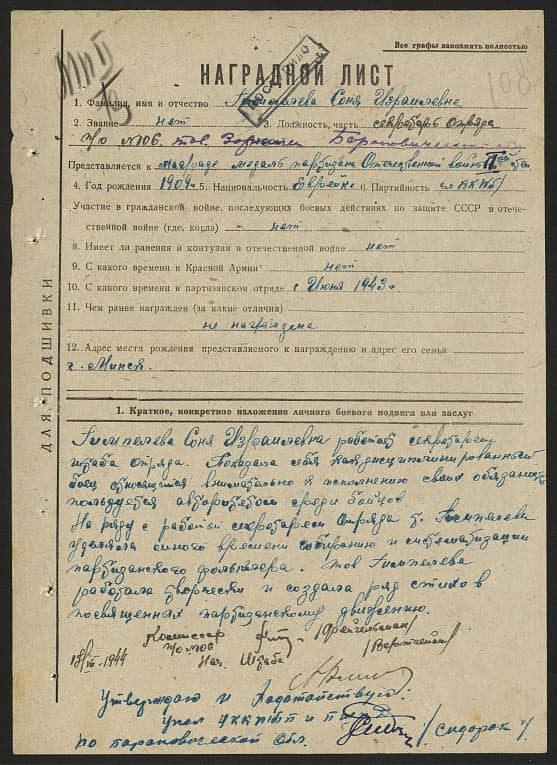 Все графы заполнять полностью
108
НАГРАДНОЙ ЛИСТ
1. Фамилия, имя и отчество Гимпелева Соня Израилевна
2. Звание нет 3. Должность, часть секретарь отряда
п/о № 106. тов. Зорина Барановической обл
Представляется к награде медаль партизана Отечественной войны II ой степ
4. Год рождения 1909 г. 5. Национальность Еврейка 6. Партийность чл ВКП(б)
Участие в гражданской войне, последующих боевых действиях по защите СССР в отече-
ственной войне (где, когда) нет
8. Имеет ли ранения и контузии в отечественной войне нет
9. С какого времени в Красной Армии нет
10. С какого времени в партизанском отряде с Июня 1943 г.
11. Чем ранее награжден (за какие отличия)
не награждена
12. Адрес места рождения представляемого к награждению и адрес его семьи
г. Минск.
ДЛЯ ПОДШИВКИ
1. Краткое, конкретное изложение личного боевого подвига или заслуг
Гимпелева Соня Израилевна работает секретарем
штаба отряда. Показала себя как дисциплинированный
боец относящийся внимательно к исполнению своих обязаност
пользуется авторитетом среди бойцов.
На ряду с работой секретарем отряда т. Гимпелева
уделяла много времени собиранию и систематизации
партизанского фольклера. тов Гимпелева
работала творчески и создала ряд стихов
посвященных партизанскому движению.
Комиссар /Фейгельман/
п/о №106
Нач. Штаба /Вертгейм/
18/VII-1944
Утверждаю и Ходотайствую:
по барановической обл. /Сидорок/